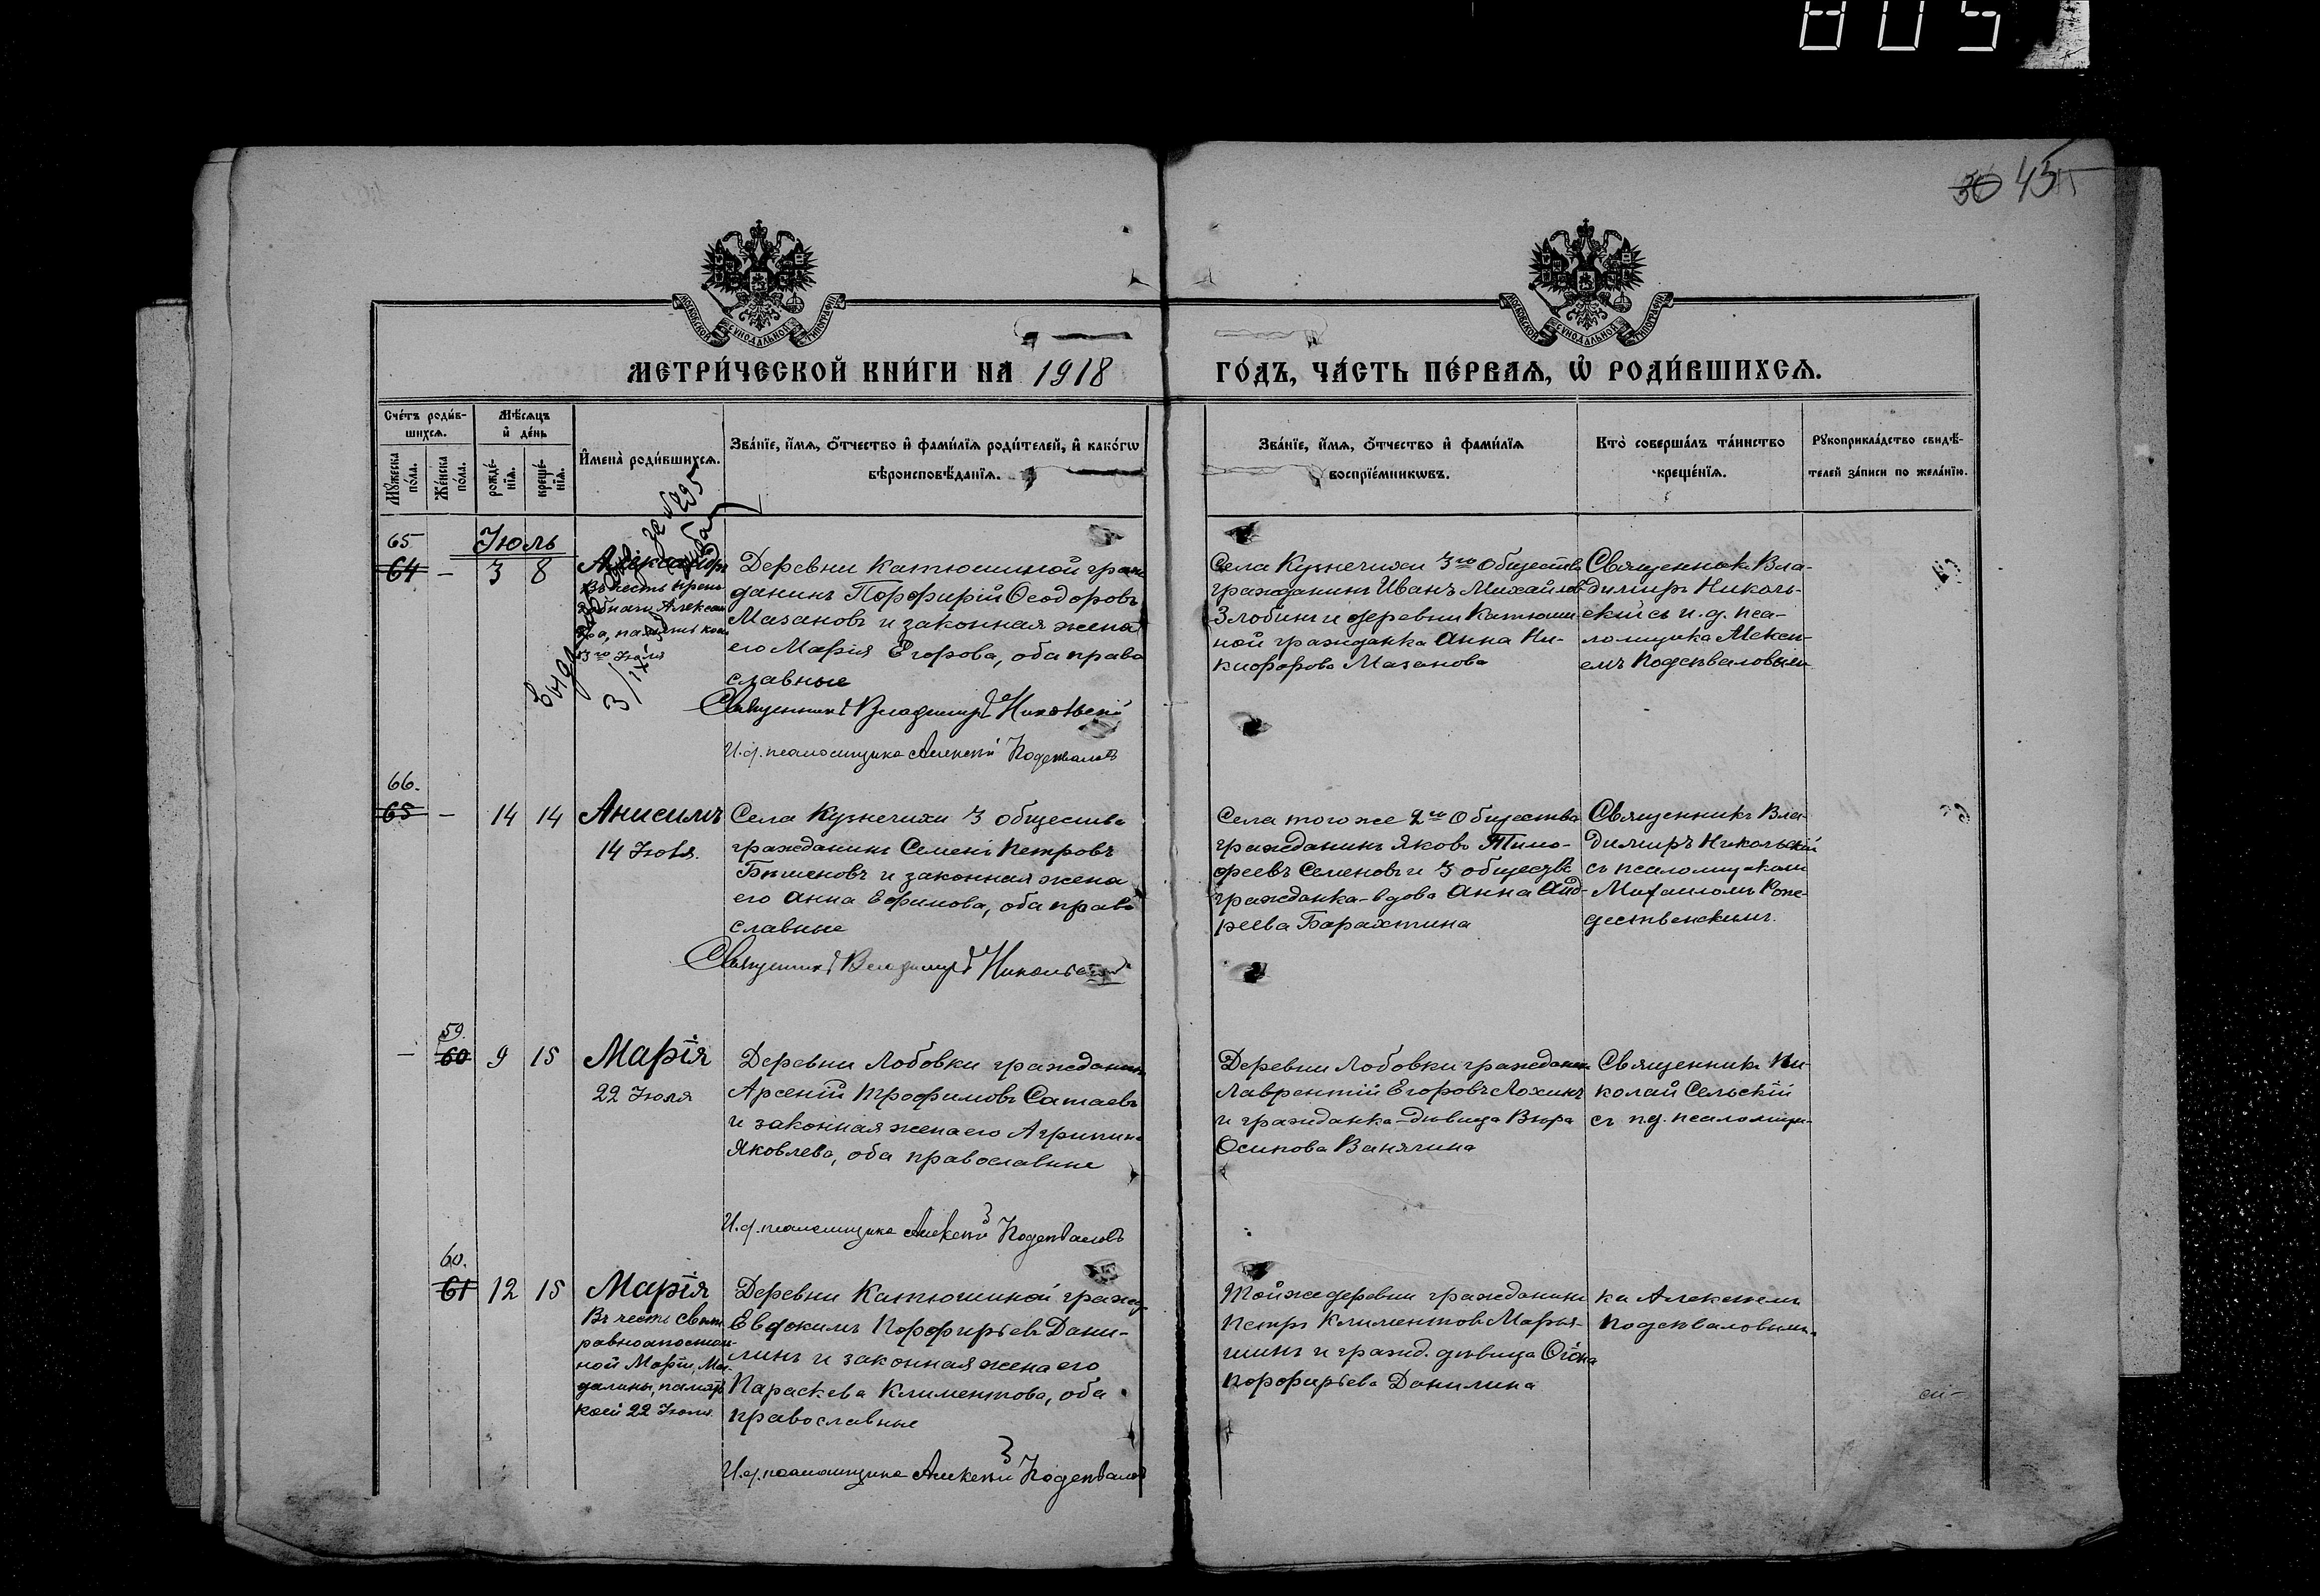 805
30 45
МОСКОВСКОЙ СѴНОДАЛЬНОЙ ТИПОГРАФІИ
МОСКОВСКОЙ СѴНОДАЛЬНОЙ ТИПОГРАФІИ
МЕТРИ́ЧЕСКОЙ КНИ́ГИ НА 1918
ГО́ДЪ, ЧА́СТЬ ПЕ́РВАЯ, Ѡ҆ РОДИ́ВШИХСѦ.
Сче́тъ роди́в-
шихсѧ.
Мꙋ́жеска по́ла.
Же́нска по́ла.
Мѣ́сѧцъ
и҆ де́нь
рожде́-
нїѧ.
креще́-
нїѧ.
И҆мена̀ роди́вшихсѧ.
Зва́нїе, и҆́мѧ, ѻ҆́тчество и҆ фами́лїѧ роди́телей, и҆ како́гѡ
вѣроисповѣ́данїѧ.
Зва́нїе, и҆́мѧ, ѻ҆́тчество и҆ фами́лїѧ
воспрїе́мникѡвъ.
Кто̀ соверша́лъ та́инство
креще́нїѧ.
Рꙋкоприкла́дство свидѣ́-
телей за́писи по жела́нїю.
Іюль
65
64 – 3 8
Александръ
Въ честь
Алексан
дра, память коего
3го Іюля
за № 295
Деревни Катюшиной граж
данинъ Порфирій Ѳеодоровъ
Мазановъ и законная жена
его Марія Егорова, оба право
славные
Священникъ Владимиръ Никольскій
И.д. псаломщика Алексѣй Подсѣваловъ
Села Кузнечихи 3го Общества
гражданинъ Иванъ Михайловъ
Злобинъ и деревни Катюши
ной гражданка Анна Ни-
кифорова Мазанова
Священникъ Вла-
димиръ Николь-
скій съ и.д. пса-
ломщика Алексѣ-
емъ Подсѣваловымъ
66.
65 – 14 14
Анисимъ
14 Іюля.
Села Кузнечихи 3 общества
гражданинъ Семенъ Петровъ
и законная жена
его Анна Ефимова, оба право
славные
Священникъ Владимиръ Никольскій
Села того же 2го Общества
гражданинъ Яковъ Тимо-
феевъ Семеновъ и 3 обществ
гражданка-вдова Анна Анд-
реева Барахтина
Священникъ Вла-
димиръ Никольскій
съ псаломщикомъ
Михаиломъ Рож-
дественскимъ.
59.
– 60 9 15
Марія
22 Іюля
Деревни Лобовки гражданинъ
Арсеній Трофимовъ Сатаевъ
и законная жена его Агрипина
Яковлева, оба православные
И.д. псаломщика Алексѣй Подсѣваловъ
Деревни Лобовки гражданинъ
Лаврентій Егоровъ Лохинъ
и гражданка-дѣвица Вѣра
Осипова Ванягина
Священникъ Ни-
колай Сельскій
съ и.д. псаломщи-
60.
61 12 15
Марія
Въ честь святой
равноапостоль-
ной Маріи Маг-
далины, память
коей 22 Іюля.
Деревни Катюшиной гражд.
Евдокимъ Порфирьевъ Дани-
линъ и законная жена его
Параскева Климентова, оба
православные
И.д. псаломщика Алексѣй Подсѣваловъ
Той же деревни гражданинъ
Петръ Климентовъ Марья-
шинъ и гражд. дѣвица
Порфирьева Данилина
ка Алексѣемъ
Подсѣваловымъ